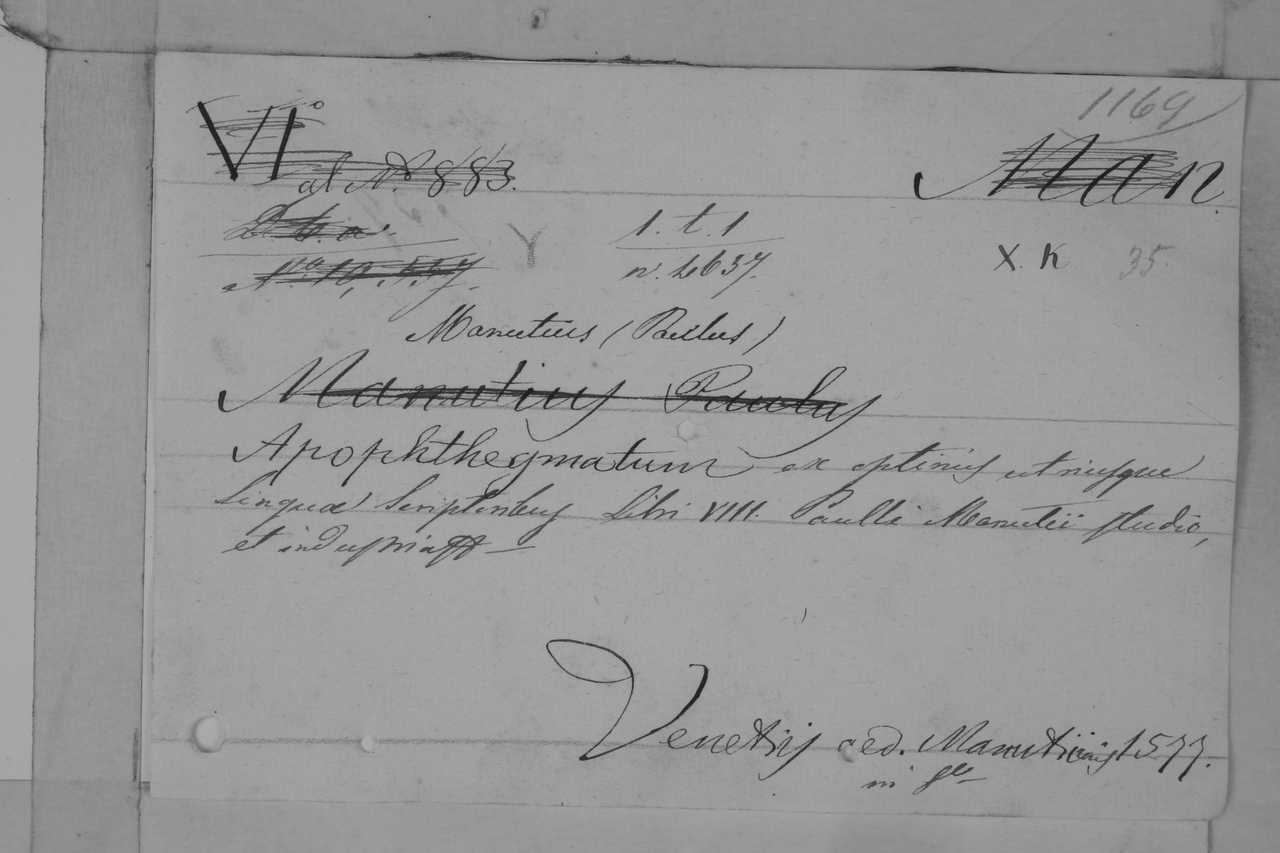 1169
VI°
al No. 883.
Man.
1. t. 1
n. 2637.
X. K
35.
Manutius (Paulus)
Manutius Paulus
Apophthegmatum ex optimis utriusque
Linguæ Scriptoribus Libri VIII. Paulli Manutii studio,
et industria
Venetiis aed. Manutiis 1577.
in 8º